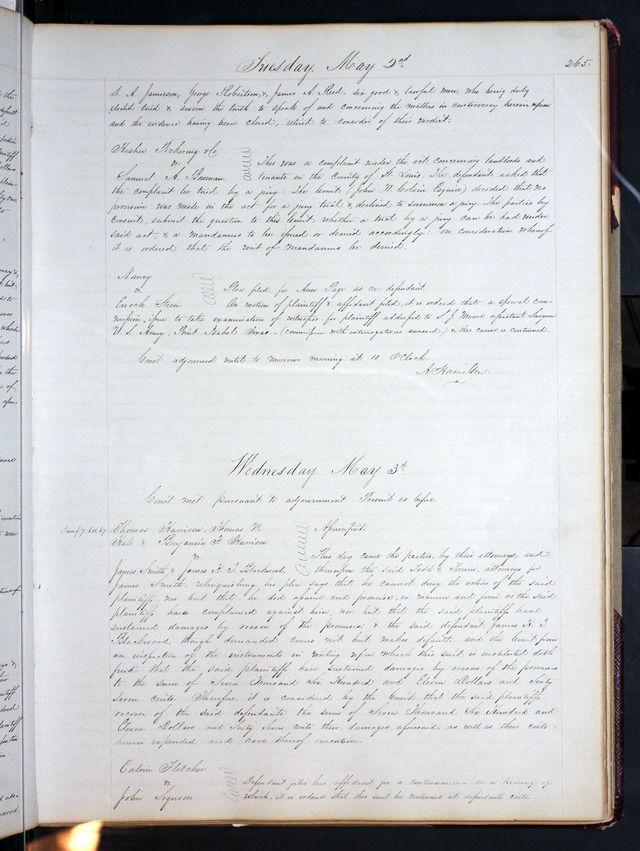 Tuesday, May 2nd
265.
A. Jamieson, George Robertson, & James A. Reed. six good & lawful men, who being duly
elected tried & sworn the truth to speak of and concerning the matters in controversy herein upon
and the evidence having been closed, retired to consider of their verdict.
& Co.
vs
Samuel A. Bowman
This was a complaint under the act concerning landlords and
tenants in the County of St. Louis. The defendant asked that
the complaint be tried by a jury: The Court (John W. Colvin Esquire) decided that no
provision was made in the act for a jury trial & declined to summon a jury. The parties by
consent, submit the question to this Court whether a trial by a jury can be had under
said act, & a mandamus to be issued or denied accordingly: on consideration whereof
it is ordered that the writ of mandamus be denied.
Nancy
vs
Enoch Steen
Plea filed for Ann Page as co-defendant.
On motion of plaintiff & affidavit filed, it is ordered that a special com-
mission issue to take examination of witnesses for plaintiff addressed to S. J. Moore assistant Surgeon
U S. Army, Point Isabel Texas - (commission with interrogatories annexed) & this cause is continued.
Court adjourned until to morrow morning at 10 O'Clock
A Hamilton.
Wednesday May 3d
Court met pursuant to adjournment. Present as before.
Thomas Harrison, Thomas W.
& Benjamin F. Harrison
vs
James Smith & James K. T. Blackwood
Assumpsit.
This day came the parties, by their attorneys, and
thereupon the said Todd & attorneys for
James Smith, relinquishing his plea says that he cannot deny the action of the said
plaintiffs, nor but that he did assume and promise, in manner and form as the said
plaintiffs have complained against him, nor but that the said plaintiffs have
sustained damages by reason of the premises, & the said defendant James K. T.
Blackwood, though demanded, comes not but makes default, and the Court from
an inspection of the instruments in writing upon which this suit is instituted doth
find that the said plaintiffs have sustained damages by reason of the premises
to the sum of Seven Thousand Six Hundred and Eleven Dollars and Sixty
Seven cents. Therefore it is considered by the Court that the said plaintiffs
recover of the said defendants the sum of Seven Thousand Six Hundred and
Eleven Dollars and Sixty Seven cents their damages aforesaid, as well as their costs
herein expended, and have thereof execution.
Calvin Fletcher
vs
John
Defendant files his affidavit for a continuance - on a hearing of
which, it is ordered that this suit be continued at defendants costs.